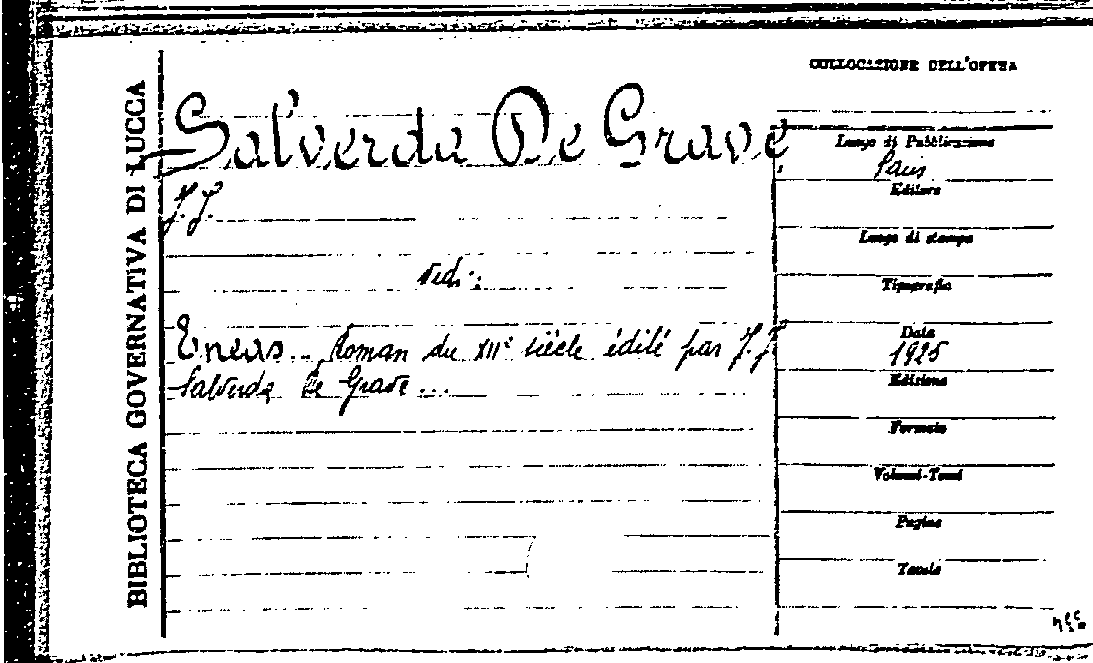 BIBLIOTECA GOVERNATIVA DI LUCCA
Salverda De Grave,
J. J.
vedi:
Eneas... Roman du XIIe siècle édité par J. J.
Salverda De Grave...
COLLOCAZIONE DELL'OPERA
Luogo di Pubblicazione
Paris
Editore
Luogo di stampa
Tipografia
Data
1925
Edizione
Formato
Volumi-Tomi
Pagine
Tavole